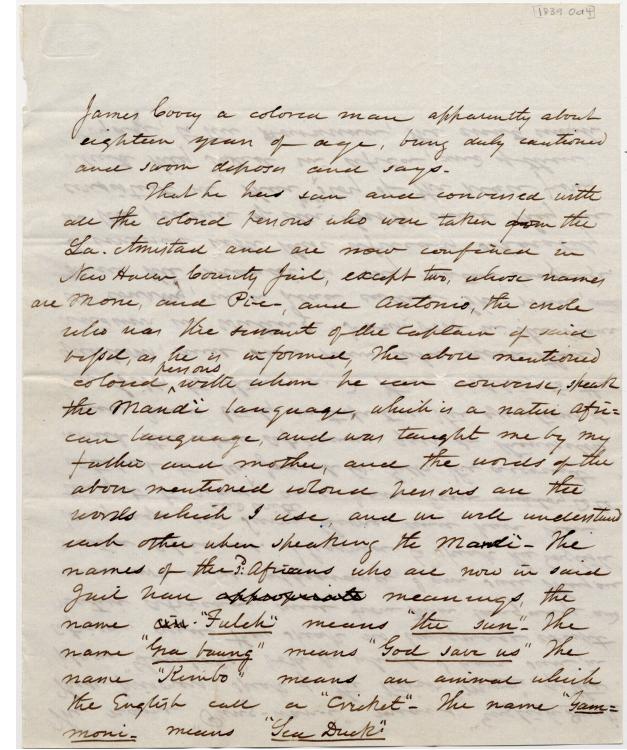 1839 Oct 4
James Covey a colored man apparently about
eighteen years of age, being duly cautioned
and sworn deposes and says.
That he has seen and conversed with
all the colored persons who were taken from the
La. Amistad and are now confined in
New Haven County Jail, except two, whose names
are Mone, and Pie, and Antonio, the creole
who was the servant of the Captain of said
vessel, as he is informed, The above mentioned
persons
colored with whom he can converse, speak
the Mandi language, which is a native Afri=
can language, and was taught me by my
father and mother, and the words of the
above mentioned colored persons are the
words which I use, and we well understand
each other when speaking the Mandi - The
names of the Africans who are now in said
Jail have appropriate meanings, the
name "Fuleh" means "the sun" - The
name "Gra baung" means "God save us" The
name "Kimbo" means an animal which
the English call a "Cricket" - The name "Gam=
moni - means "Sea Duck"